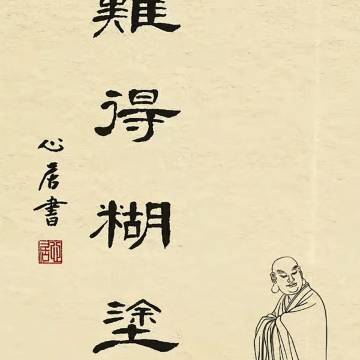 難得糊塗
心居書